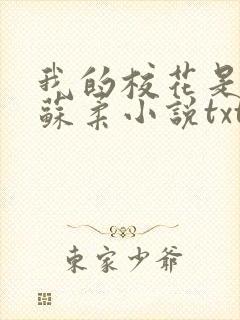 我的校花是
蘇柔小說txt
東家少爺